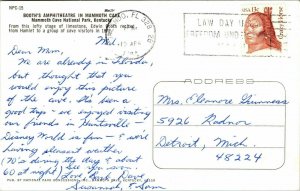 NPC-15
BOOTH'S AMPHITHEATRE IN MAMMOTH CAVE
Mammoth Cave National Park, Kentucky
From this lofty stage of limestone, Edwin Booth recited
from Hamlet to a group of cave visitors in
Wed.
FL 328
12 APR
LAW DAY U
FREEDOM UND
USA 13c
Crazy Horse
Dear Mom,
We are already in
but thought that you
would enjoy this picture
of the cave. He's been a
good traveler - we enjoyed visiting
our friends in Huntsville
Disney World is fun - & we're
having pleasant weather
(70's during the day & about
60 at night) See you soon
Love Barb, Dave,
Savannah, & Sam
ADDRESS
Mrs. Eleonore Guinness
5926 Radnor
Detroit, Mich.
48224